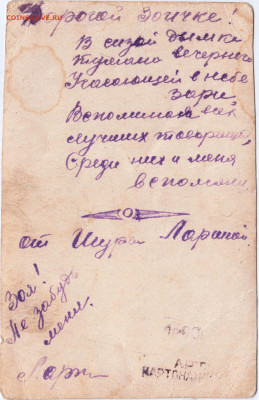 Дорогой Зоичке!
В сизой дымке
тумана вечернего
Угасающей в небе
зари
Вспоминай всех
лучших товарищей,
Среди них и меня
вспомяни
От Шуры Лариной.
Зоя!
Не забудь
меня.
КАРТОНАЖН